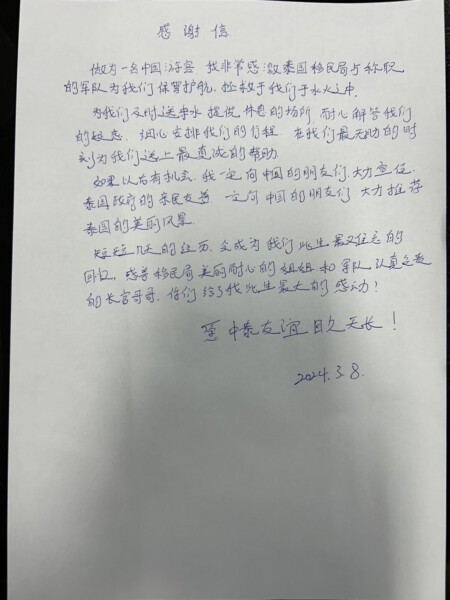 感谢信
做为一名中国游客,我非常感激泰国移民局与称职
的军队为我们保驾护航,拯救于我们于水火之中.
为我们及时送来水 提供休息的场所,耐心解答我们
的疑惑.细心安排我们的行程.在我们最无助的时
刻为我们送上最真诚的帮助.
如果以后有机会,我一定向中国的朋友们大力宣传
泰国政府的亲民友善 一定向中国的朋友们 大力推荐
泰国的美丽风景.
短短几天的经历,会成为我们此生最难忘的
回忆,感恩移民局美丽耐心的姐姐和军队认真负责
的长官哥哥,你们给了我此生最大的感动!
愿中泰友谊日久天长!
2024.3.8.